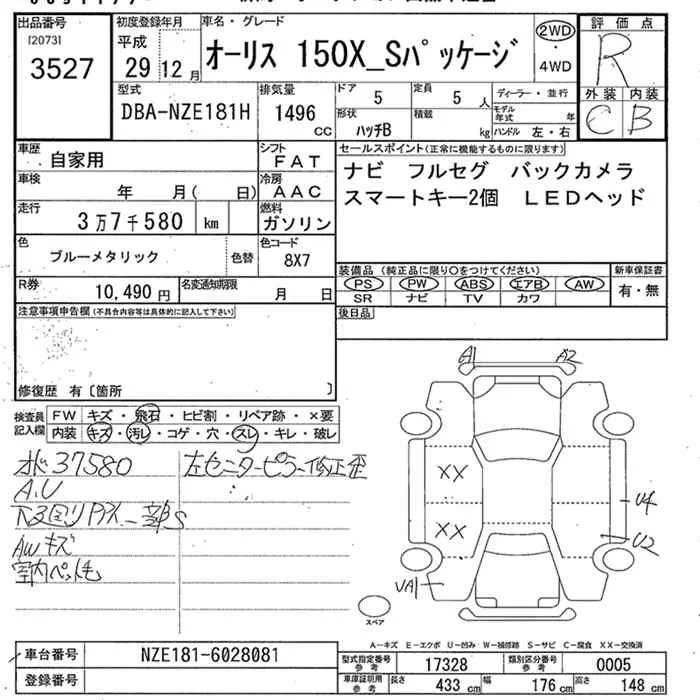 出品番号 初度登録年月 車名・グレード 評価点
[2073]
3527
平成
29 12月
オーリス 150X_Sパッケージ
2WD
・
4WD
R
外装 内装
C B
型式 排気量 ドア 定員 ディーラー・並行
DBA-NZE181H 1496 cc 5 5 人
形状 積載 モデル年式 年
ハッチB kg ハンドル 左・右
車歴 シフト セールスポイント(正常に機能するものに限ります)
自家用 FAT
ナビ フルセグ バックカメラ
スマートキー2個 LEDヘッド
車検 冷房
年 月( 日) AAC
走行 燃料
3万7千580 km ガソリン
色 色コード
ブルーメタリック 色替 8X7
装備品(純正品に限り○をつけてください) 新車保証書
PS PW ABS エアB AW 有・無
SR ナビ TV カワ
R券 名変通知期限
10,490円 月 日
後日品
注意事項申告欄(不具合内容等は具体的に記入して下さい)
修復歴 有〔箇所 〕
A1 A2
検査員記入欄 FW キズ・飛石・ヒビ割・リペア跡・×要
内装 キズ・汚レ・コゲ・穴・スレ・キレ・破レ
37580
A.U
AWキズ
室内ペット毛
左センターピラー修正歪
XX
XX
U4
U2
UA1
スペア
A-キズ E-エクボ U-凹み W-補修跡 S-サビ C-腐食 XX-交換済
車台番号 NZE181-6028081
型式指定番号 参考 17328 類別区分番号 参考 0005
登録番号
車庫証明用 参考 長さ 433 cm 幅 176 cm 高さ 148 cm